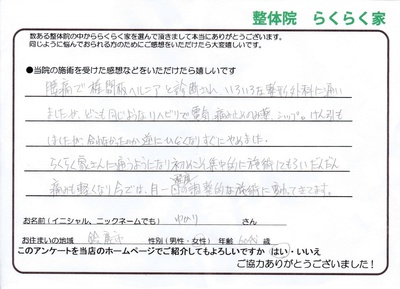 整体院 らくらく家
数ある整体院の中かららくらく家を選んで頂きまして本当にありがとうございます。
同じように悩んでおられる方のためにご感想をいただけたら大変嬉しいです。
●当院の施術を受けた感想などをいただけたら嬉しいです
腰痛で椎間板ヘルニアと診断され、いろいろな整形外科に通い
ましたが、どこも同じようなリハビリで電気、痛み止めのみ薬、シップ。けん引も
しましたが合わなかったのか逆にひどくなりすぐにやめました。
らくらく家さんに通うようになり初めのころ集中的に施術してもらいだんだん
痛みも軽くなり今では、月一回の
程度
施術に
きてます。
お名前(イニシャル、ニックネームでも) ゆかり さん
お住まいの地域 性別(男性・女性) 年齢 60代 歳
このアンケートを当店のホームページでご紹介してもよろしいですか はい・いいえ
ご協力ありがとうございました!